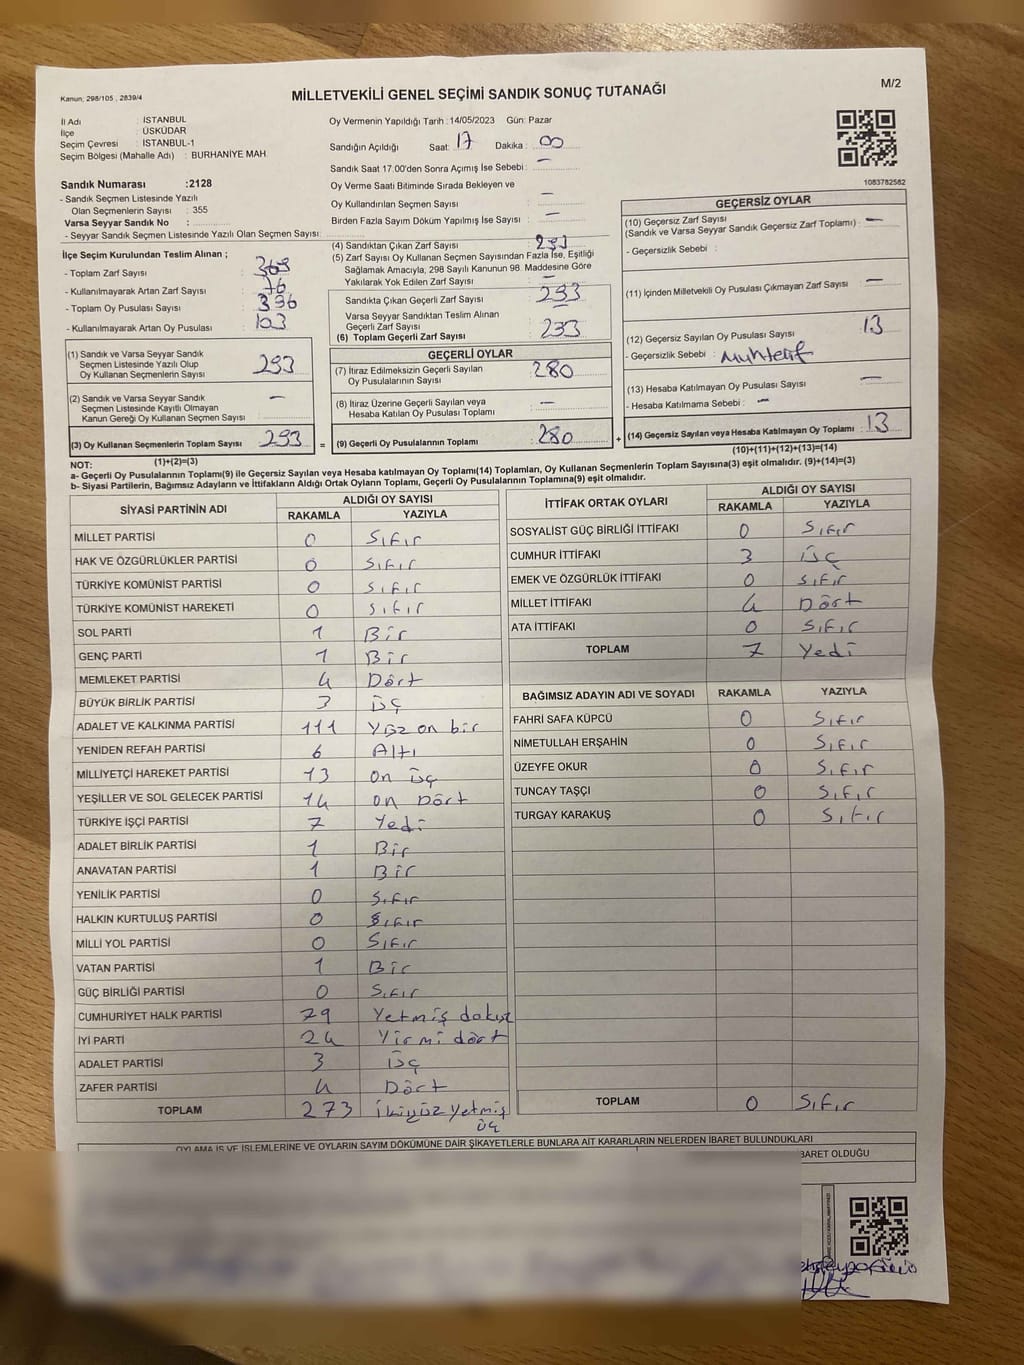 Kanun; 298/105 , 2839/4
M/2
MİLLETVEKİLİ GENEL SEÇİMİ SANDIK SONUÇ TUTANAĞI
İl Adı : İSTANBUL
İlçe : ÜSKÜDAR
Seçim Çevresi : İSTANBUL-1
Seçim Bölgesi (Mahalle Adı) : BURHANİYE MAH.
Sandık Numarası :2128
- Sandık Seçmen Listesinde Yazılı
Olan Seçmenlerin Sayısı : 355
Varsa Seyyar Sandık No :
- Seyyar Sandık Seçmen Listesinde Yazılı Olan Seçmen Sayısı:
Oy Vermenin Yapıldığı Tarih :14/05/2023 Gün: Pazar
Sandığın Açıldığı Saat: 17 Dakika: 00
Sandık Saat 17.00'den Sonra Açımış İse Sebebi: —
Oy Verme Saati Bitiminde Sırada Bekleyen ve
Oy Kullandırılan Seçmen Sayısı —
Birden Fazla Sayım Döküm Yapılmış İse Sayısı : —
1083782582
İlçe Seçim Kurulundan Teslim Alınan ;
- Toplam Zarf Sayısı : 369
- Kullanılmayarak Artan Zarf Sayısı : 76
- Toplam Oy Pusulası Sayısı : 396
- Kullanılmayarak Artan Oy Pusulası : 103
(1) Sandık ve Varsa Seyyar Sandık
Seçmen Listesinde Yazılı Olup
Oy Kullanan Seçmenlerin Sayısı : 293
(2) Sandık ve Varsa Seyyar Sandık
Seçmen Listesinde Kayıtlı Olmayan
Kanun Gereği Oy Kullanan Seçmen Sayısı —
(3) Oy Kullanan Seçmenlerin Toplam Sayısı 293 =
(4) Sandıktan Çıkan Zarf Sayısı : 293
(5) Zarf Sayısı Oy Kullanan Seçmen Sayısından Fazla İse, Eşitliği
Sağlamak Amacıyla, 298 Sayılı Kanunun 98. Maddesine Göre
Yakılarak Yok Edilen Zarf Sayısı : —
Sandıkta Çıkan Geçerli Zarf Sayısı : 293
Varsa Seyyar Sandıktan Teslim Alınan
Geçerli Zarf Sayısı :
(6) Toplam Geçerli Zarf Sayısı : 293
GEÇERLİ OYLAR
(7) İtiraz Edilmeksizin Geçerli Sayılan
Oy Pusulalarının Sayısı : 280
(8) İtiraz Üzerine Geçerli Sayılan veya
Hesaba Katılan Oy Pusulası Toplamı : —
(9) Geçerli Oy Pusulalarının Toplamı : 280 +
GEÇERSİZ OYLAR
(10) Geçersiz Zarf Sayısı
(Sandık ve Varsa Seyyar Sandık Geçersiz Zarf Toplamı) : —
- Geçersizlik Sebebi :
(11) İçinden Milletvekili Oy Pusulası Çıkmayan Zarf Sayısı : —
(12) Geçersiz Sayılan Oy Pusulası Sayısı : 13
- Geçersizlik Sebebi : Muhtelif
(13) Hesaba Katılmayan Oy Pusulası Sayısı : —
- Hesaba Katılmama Sebebi : —
(14) Geçersiz Sayılan veya Hesaba Katılmayan Oy Toplamı : 13
(10)+(11)+(12)+(13)=(14)
NOT: (1)+(2)=(3)
a- Geçerli Oy Pusulaları Toplamı(9) ile Geçersiz Sayılan veya Hesaba katılmayan Oy Toplamı(14) Toplamları, Oy Kullanan Seçmenlerin Toplam Sayısına(3) eşit olmalıdır. (9)+(14)=(3)
b- Siyasi Partilerin, Bağımsız Adayların ve İttifakların Aldığı Ortak Oyların Toplamı, Geçerli Oy Pusulalarının Toplamına(9) eşit olmalıdır.
SİYASİ PARTİNİN ADI ALDIĞI OY SAYISI
RAKAMLA YAZIYLA
MİLLET PARTİSİ 0 Sıfır
HAK VE ÖZGÜRLÜKLER PARTİSİ 0 Sıfır
TÜRKİYE KOMÜNİST PARTİSİ 0 Sıfır
TÜRKİYE KOMÜNİST HAREKETİ 0 Sıfır
SOL PARTİ 1 Bir
GENÇ PARTİ 1 Bir
MEMLEKET PARTİSİ 4 Dört
BÜYÜK BİRLİK PARTİSİ 3 Üç
ADALET VE KALKINMA PARTİSİ 111 Yüz on bir
YENİDEN REFAH PARTİSİ 6 Altı
MİLLİYETÇİ HAREKET PARTİSİ 13 On üç
YEŞİLLER VE SOL GELECEK PARTİSİ 14 On Dört
TÜRKİYE İŞÇİ PARTİSİ 7 Yedi
ADALET BİRLİK PARTİSİ 1 Bir
ANAVATAN PARTİSİ 1 Bir
YENİLİK PARTİSİ 0 Sıfır
HALKIN KURTULUŞ PARTİSİ 0 Sıfır
MİLLİ YOL PARTİSİ 0 Sıfır
VATAN PARTİSİ 1 Bir
GÜÇ BİRLİĞİ PARTİSİ 0 Sıfır
CUMHURİYET HALK PARTİSİ 79 Yetmiş dokuz
İYİ PARTİ 24 Yirmi dört
ADALET PARTİSİ 3 Üç
ZAFER PARTİSİ 4 Dört
TOPLAM 273 İkiyüz yetmiş
üç
İTTİFAK ORTAK OYLARI ALDIĞI OY SAYISI
RAKAMLA YAZIYLA
SOSYALİST GÜÇ BİRLİĞİ İTTİFAKI 0 Sıfır
CUMHUR İTTİFAKI 3 Üç
EMEK VE ÖZGÜRLÜK İTTİFAKI 0 Sıfır
MİLLET İTTİFAKI 4 Dört
ATA İTTİFAKI 0 Sıfır
TOPLAM 7 Yedi
BAĞIMSIZ ADAYIN ADI VE SOYADI RAKAMLA YAZIYLA
FAHRİ SAFA KÜPCÜ 0 Sıfır
NİMETULLAH ERŞAHİN 0 Sıfır
ÜZEYFE OKUR 0 Sıfır
TUNCAY TAŞÇI 0 Sıfır
TURGAY KARAKUŞ 0 Sıfır
TOPLAM 0 Sıfır
OYLAMA İŞ VE İŞLEMLERİNE VE OYLARIN SAYIM DÖKÜMÜNE DAİR ŞİKAYETLERLE BUNLARA AİT KARARLARIN NELERDEN İBARET BULUNDUKLARI
BARET OLDUĞU